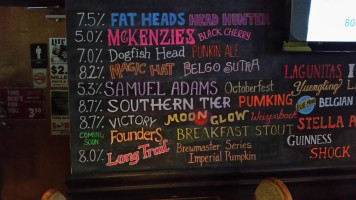 7.5% FAT HEADS HEAD HUNTER
5.0% McKENZIES BLACK CHERRY
7.0% Dogfish Head PUNKIN ALE
8.2% MAGIC HAT BELGO SUTRA
5.3% SAMUEL ADAMS Octoberfest
8.7% SOUTHERN TIER PUMKING
8.7% VICTORY MOONGLOW Weizenbock
COMING SOON Founders BREAKFAST STOUT
8.0% Long Trail Brewmaster Series
Imperial Pumpkin
LAGUNITAS
Yuengling
BELGIAN
STELLA
GUINNESS
SHOCK